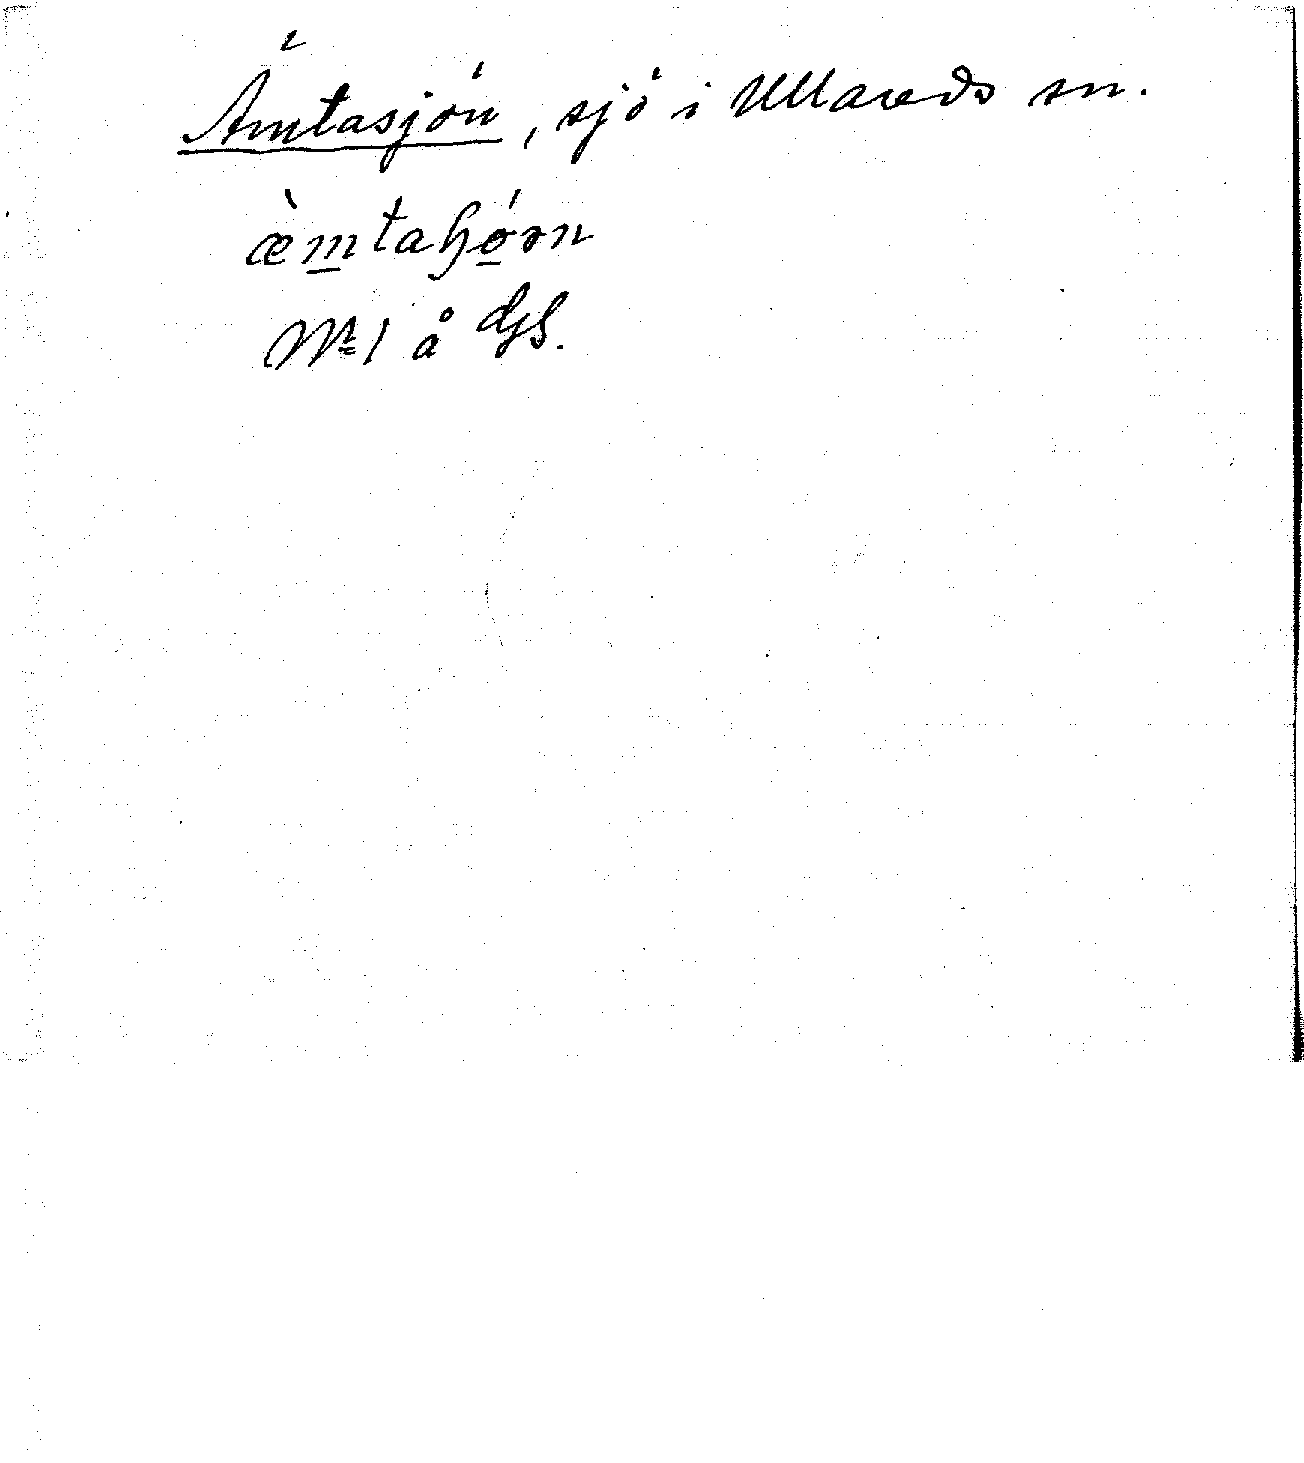 Ämtasjön, sjö i Ullareds sn.
æ̀m̲taꜧọ́ən
No 1 å dgs.